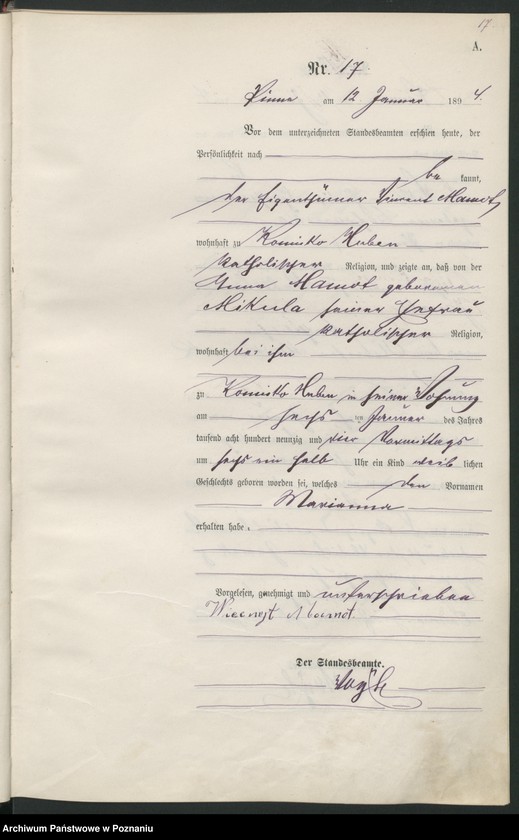 17.
A.
Nr. 17.
Pinne am 12 Januar 1894.
Vor dem unterzeichneten Standesbeamten erschien heute, der
Persönlichkeit nach
be kannt,
der Eigenthümer Vincent Mamot,
wohnhaft zu Komisko Huben
katholischer Religion, und zeigte an, daß von der
Anna Mamot geborenen
Mikula seiner Ehefrau
katholischer Religion,
wohnhaft bei ihm
zu Komisko Huben in seiner Wohnung
am sechs ten Januar des Jahres
tausend acht hundert neunzig und vier Vormittags
um sechs ein halb Uhr ein Kind weib lichen
Geschlechts geboren worden sei, welches den Vornamen
Marianna
erhalten habe.
Vorgelesen, genehmigt und unterschrieben
Mamot.
Der Standesbeamte.
Archiwum Państwowe w Poznaniu